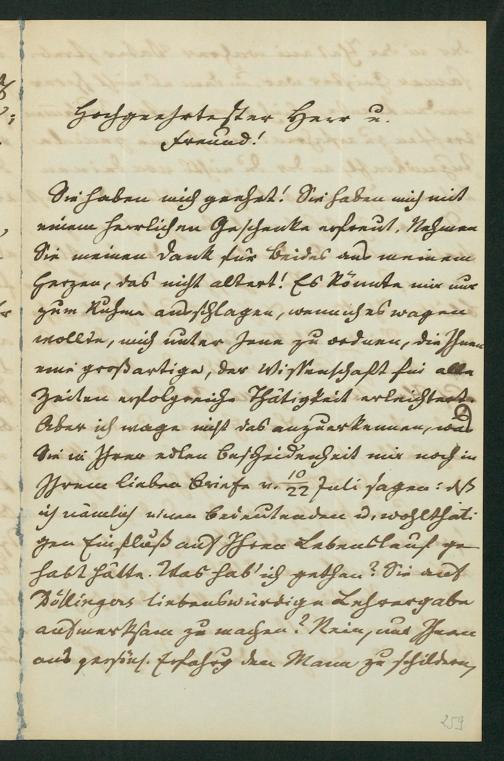 Hochgeehrtester Herr u.
Freund!
Sie haben mich geehrt! Sie haben mich mit
einem herrlichen Geschenke erfreut. Nehmen
Sie meinen Dank für Beides aus meinem
Herzen, das nicht altert! Es könnte mir nur
zum Ruhme ausschlagen, wenn ich es wagen
wollte, mich unter Jene zu ordnen, die Ihnen
eine großartige, der Wissenschaft für alle
Zeiten erfolgreiche Thätigkeit erleichtert.
Aber ich wage nicht das anzuerkennen, was
Sie in Ihrer edlen Bescheidenheit mir noch in
Ihrem lieben Briefe v. 10/22 Juli sagen: daß
ich nämlich einen bedeutenden u. wohlthäti
gen Einfluß auf Ihren Lebenslauf ge
habt hätte. Was hab' ich gethan? Sie auf
Döllingers liebenswürdige Lehrergabe
aufmerksam zu machen? Nein, nur Ihnen
aus persönl. Erfahrg den Mann zu schildern,
259